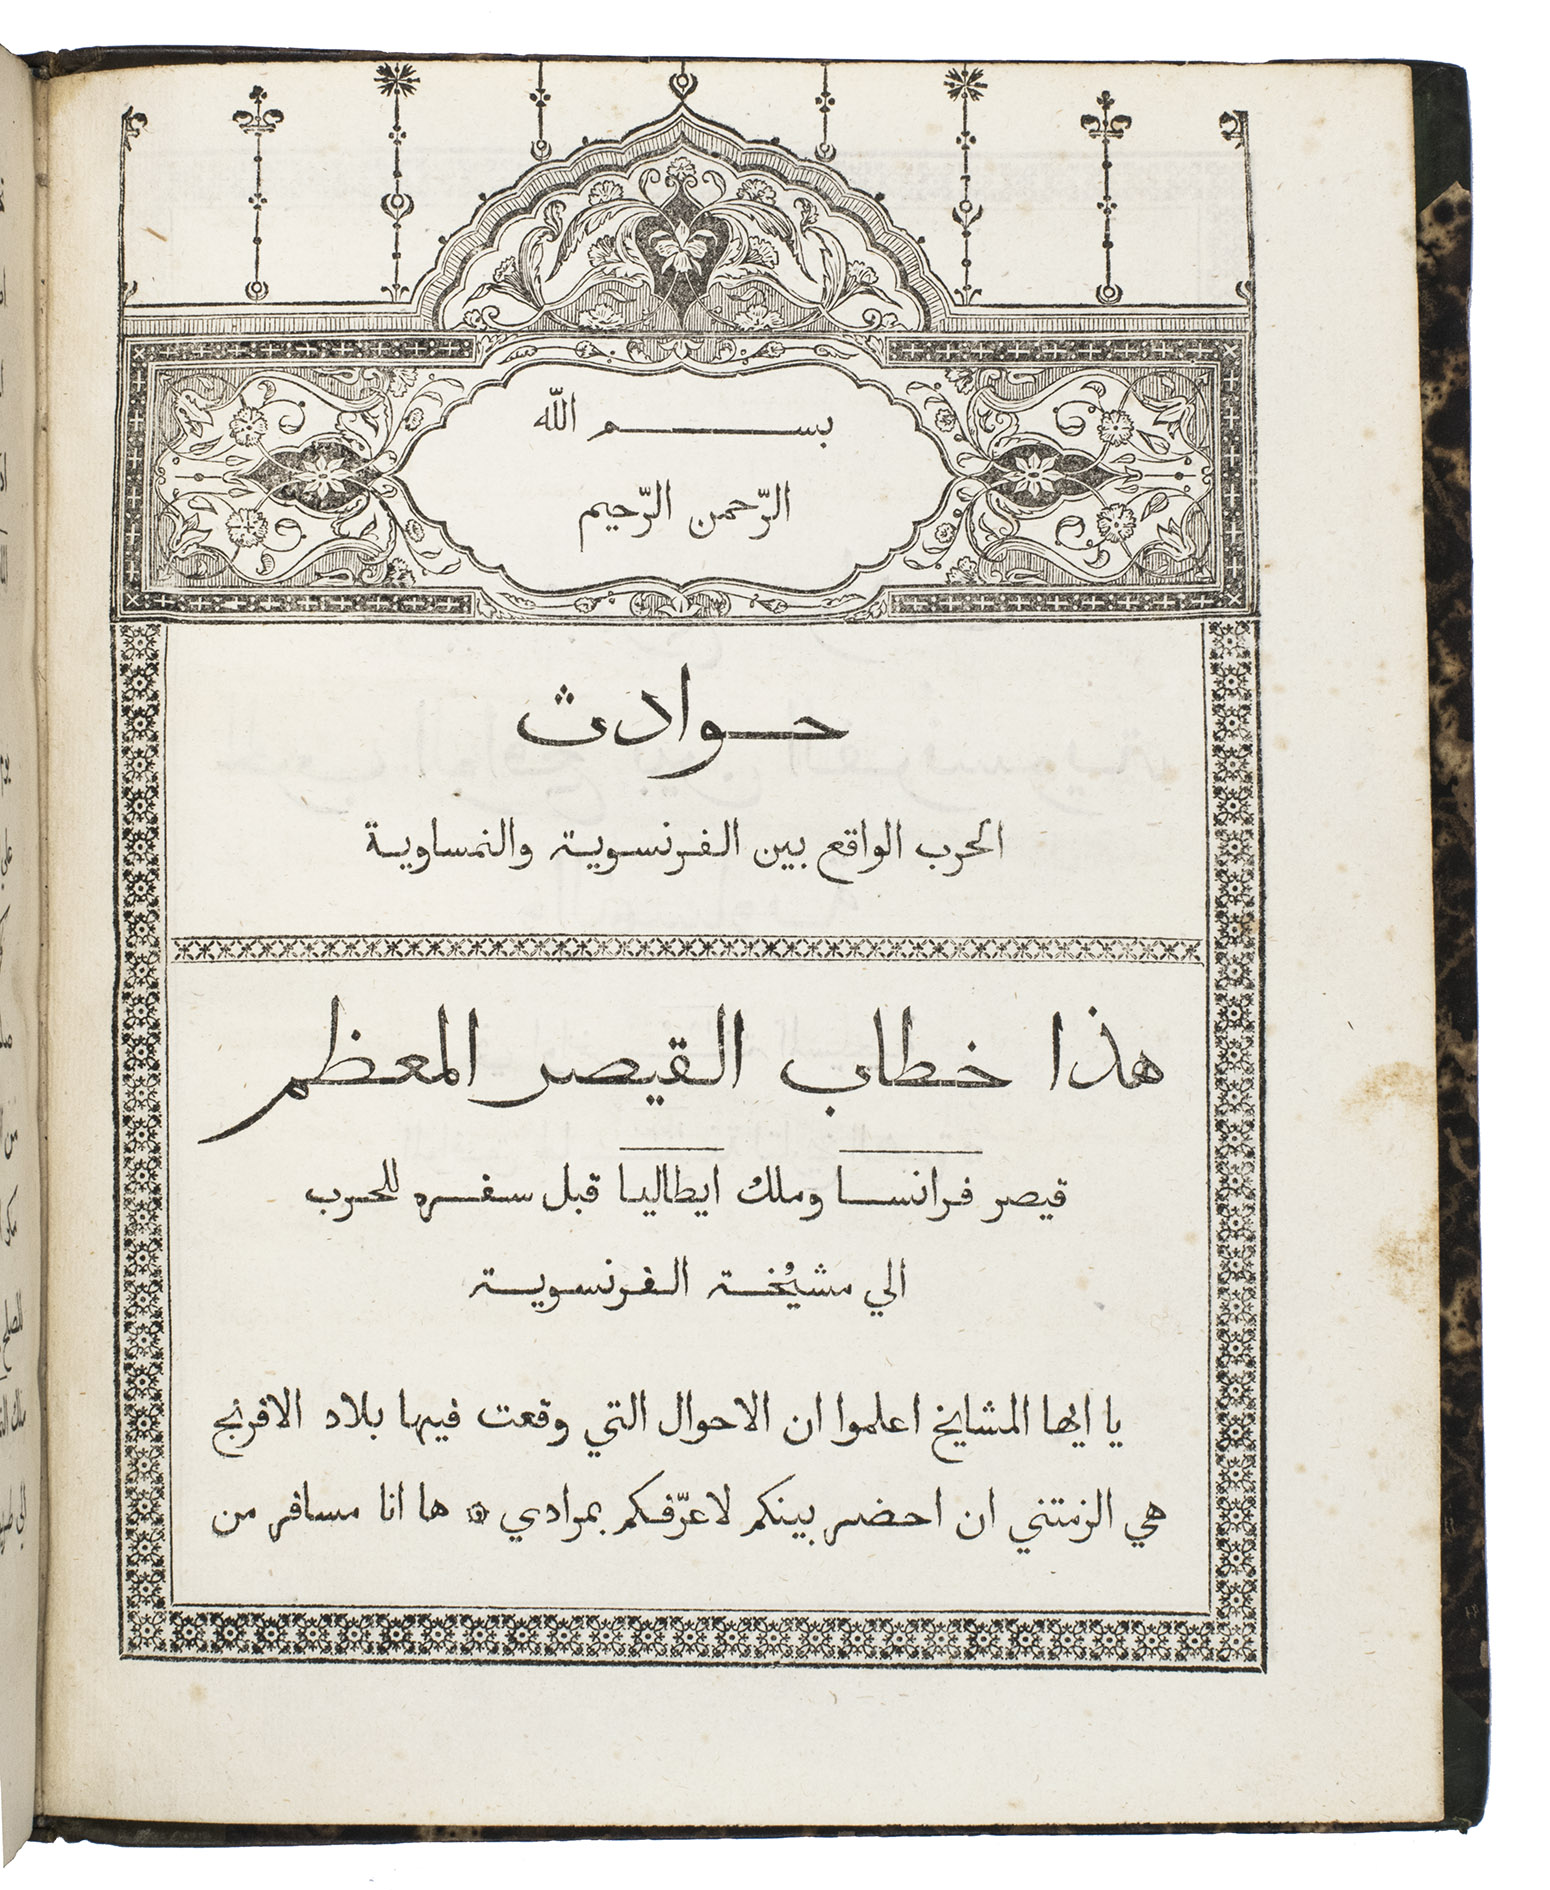 بسم الله
الرّحمن الرّحيم
حوادث
الحرب الواقع بين الفرنسوية والنمساوية
هذا خطاب القيصر المعظم
قيصر فرانسا وملك ايطاليا قبل سفره للحرب
الي مشيُخة الفرنسوية
يا ايها المشايخ اعلموا ان الاحوال التي وقعت فيها بلاد الافرنج
هي الزمتني ان احضر بينكم لاعرّفكم بمرادي ۞ ها انا مسافر من